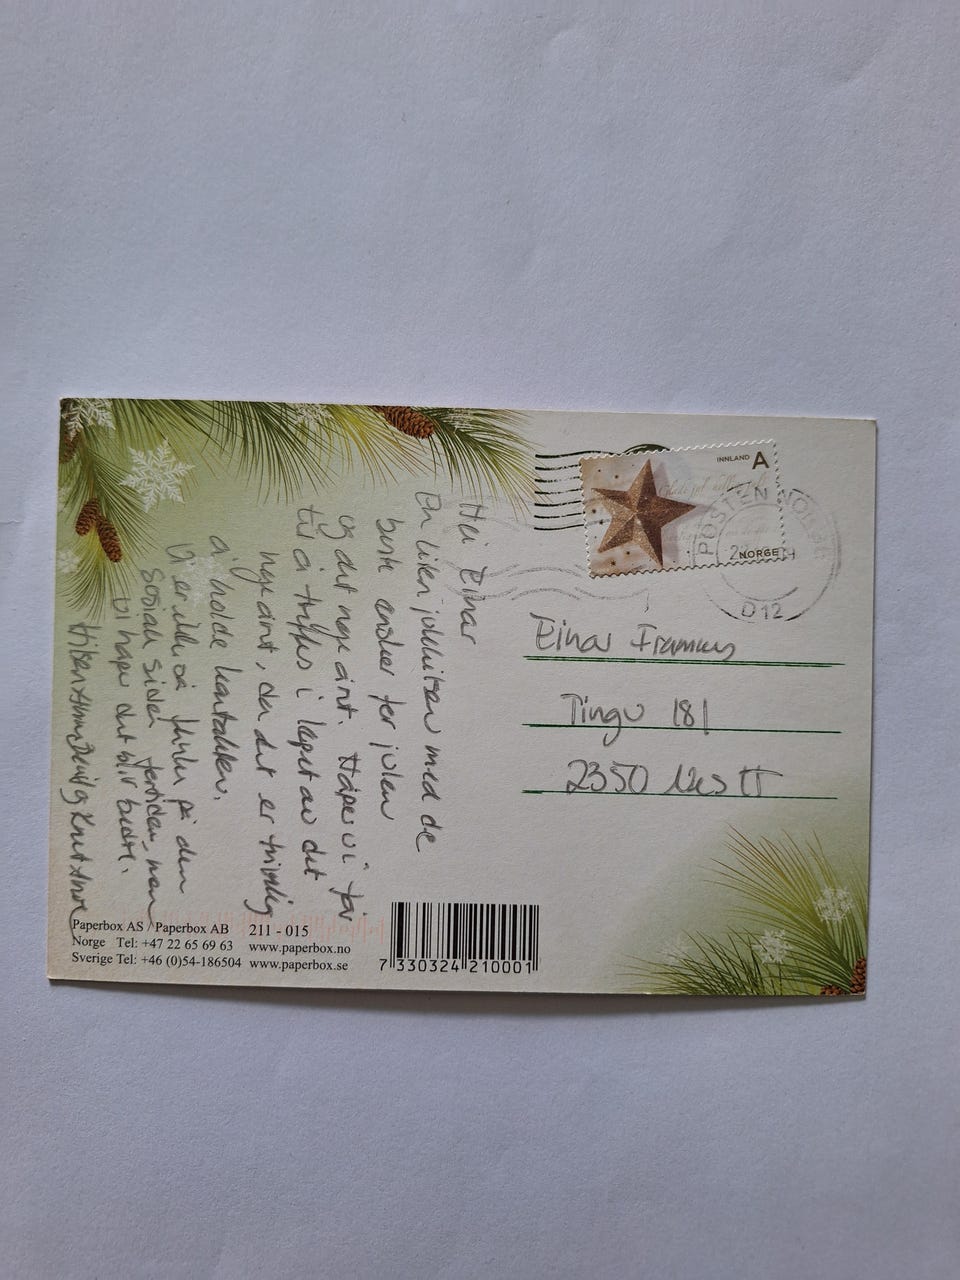 Hei Einar
En liten julehilsen med de
beste ønsker for julen
og det nye året. Håper vi får
tid å treffes i løpet av det
nye året, da det er trivelig
å holde kontakten.
Vi er ikke så flinke på den
sosiale siden for tiden, men
vi håper det blir bedre.
Hilsen Anny Bodil og Knut Arne
INNLAND A
NORGE
POSTEN NORGE
D12
Einar
Tingv 181
2350 Nes H
Paperbox AS / Paperbox AB 211 - 015
Norge Tel: +47 22 65 69 63 www.paperbox.no
Sverige Tel: +46 (0)54-186504 www.paperbox.se
7 330324 210001